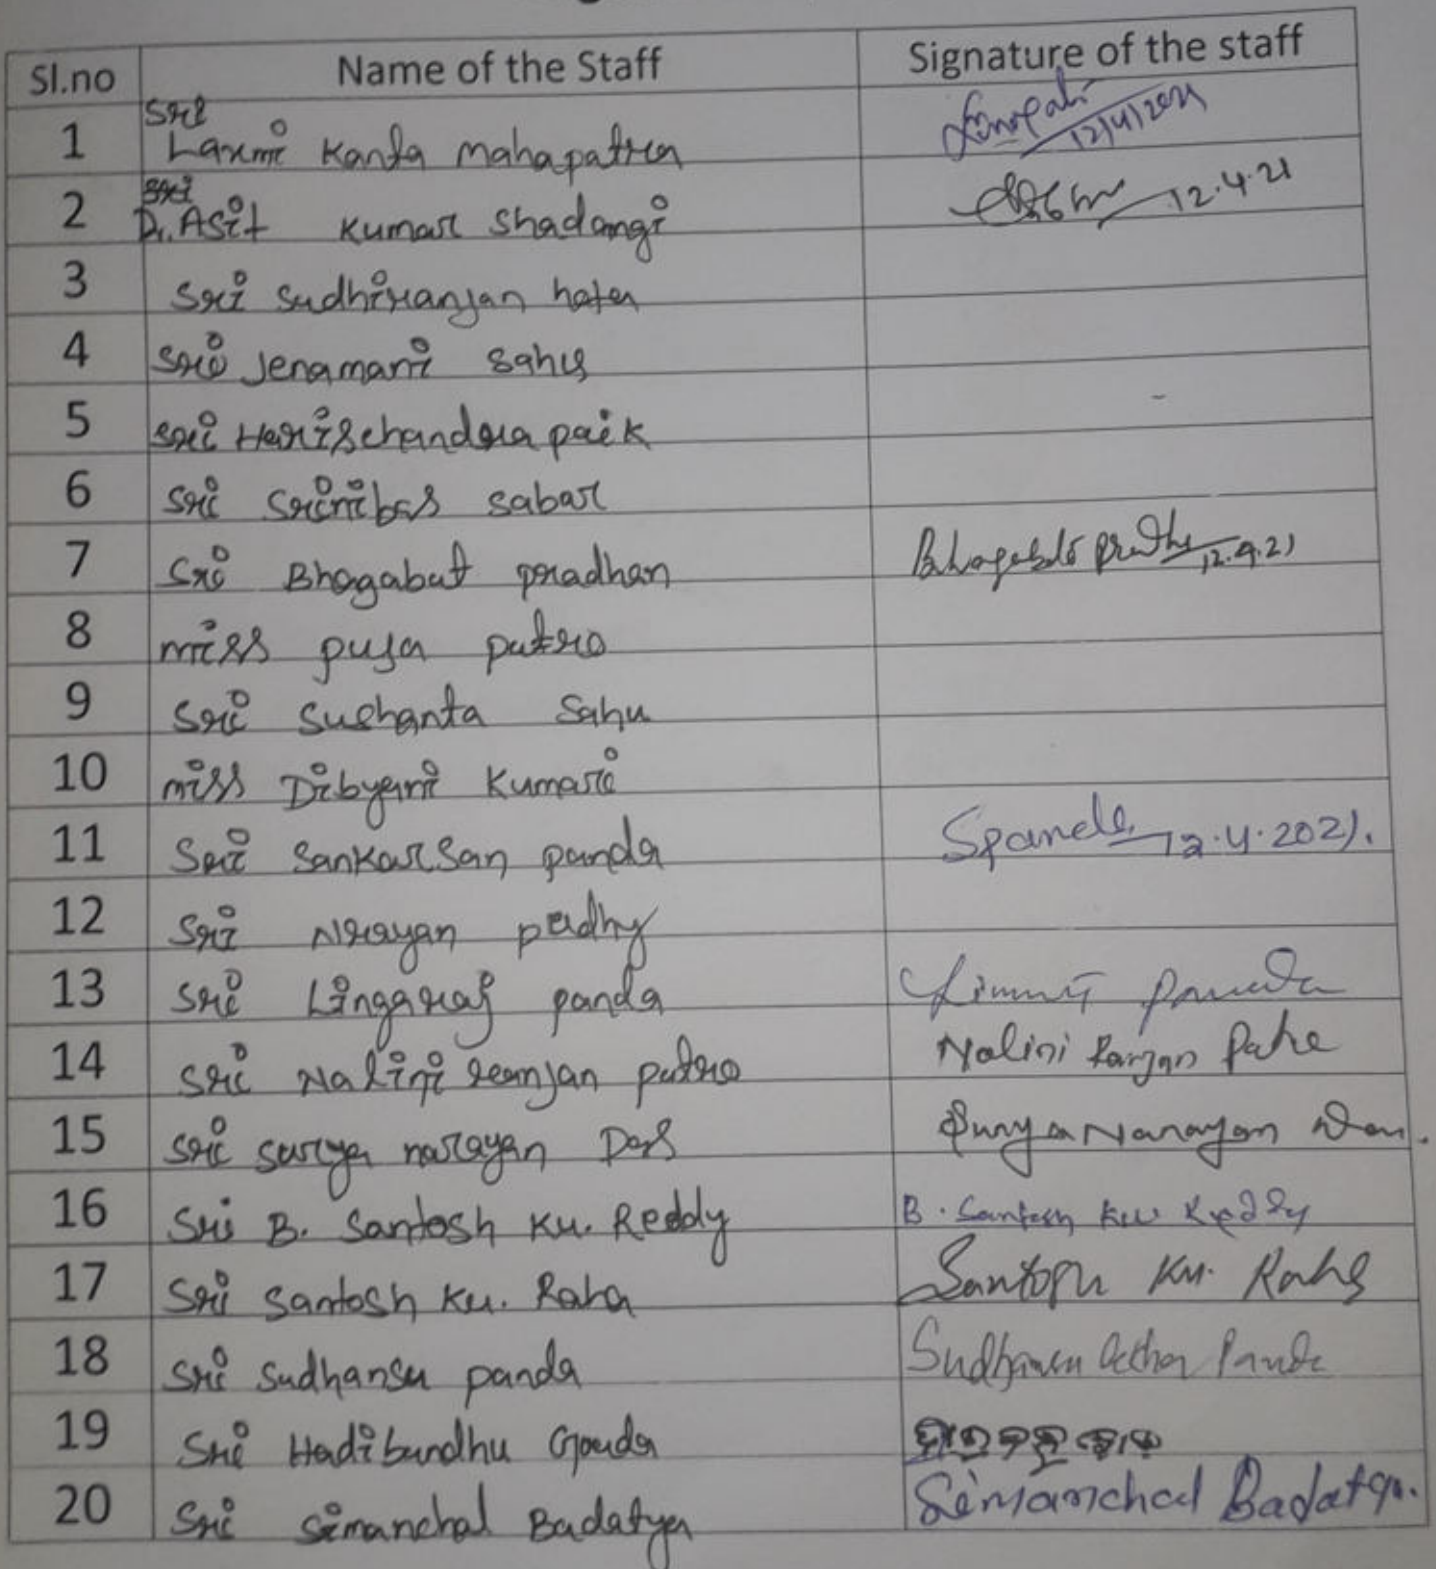 Sl.no Name of the Staff Signature of the staff
Sri
1 Laxmi Kanta Mahapatra 12/4/2021
2 Dr. Asit Kumar Shadangi 12.4.21
3 Sri Sudhiranjan
4 Sri Jenamani Sahu
5 Sri Harischandra paik
6 Sri Srinibas Sabar
7 Sri Bhagabat pradhan 12.4.21
8 miss puja patro
9 Sri Sushanta Sahu
10 miss Dibyani Kumari
11 Sri Sankarsan panda Spanda 12.4.2021.
12 Sri Narayan padhy
13 Sri Lingaraj panda Panda
14 Sri Nalini ranjan patro Nalini Ranjan
15 Sri surya narayan Das Surya Narayan
16 Sri B. Santosh Ku. Reddy B. Santosh Ku Reddy
17 Sri Santosh Ku. Raha Santosh Ku. Raha
18 Sri Sudhansu panda
19 Sri Hadibandhu Gouda
20 Sri Simanchal Badatya Simanchal Badatya.